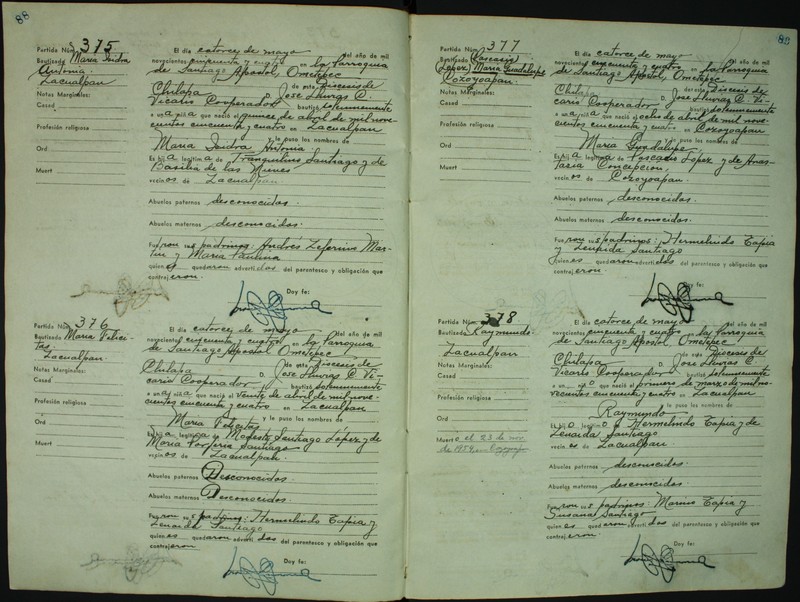 88
Partida Núm. 375
Bautizada María Isidra
Antonia.
Lacualpan
Notas Marginales:
Casad
Profesión religiosa
Ord
Muert
El día catorce de mayo del año de mil
novecientos cincuenta y cuatro en la Parroquia
de Santiago Apostol, Ometepec
Chilapa de esta Diócesis de
D. José Lluvias C. Vicario Cooperador bautizó solemnemente
a una niña que nació el quince de abril de mil nove-
cientos cincuenta y cuatro en Lacualpan
y le puso los nombres de
María Isidra Antonia
Es hija legítima de Tranquilino Santiago y de
Basilia de las Nieves
vecinos de Lacualpan
Abuelos paternos desconocidos.
Abuelos maternos desconocidos.
Fueron sus padrinos: Andrés Zeferino Mar-
tin y María Paulina
quienes quedaron advertidos del parentesco y obligación que
contrajeron.
Doy fe:
Partida Núm. 376
Bautizada María Felici-
tas
Lacualpan.
Notas Marginales:
Casad
Profesión religiosa
Ord
Muert
El día catorce de mayo del año de mil
novecientos cincuenta y cuatro en la Parroquia
de Santiago Apostol Ometepec
Chilapa de esta Diócesis de
D. José Lluvias C. Vi-
cario Cooperador bautizó solemnemente
a una niña que nació el veinte de abril de mil nove-
cientos cincuenta y cuatro en Lacualpan
y le puso los nombres de
María Felicitas
Es hija legítima de Modesto Santiago López y de
María Porfiria Santiago
vecinos de Lacualpan.
Abuelos paternos Desconocidos.
Abuelos maternos Desconocidos.
Fueron sus padrinos: Hermelindo Tapia y
Zenaida Santiago
quienes quedaron advertidos del parentesco y obligación que
contrajeron
Doy fe:
88
Partida Núm. 377
Bautizada (Poscacio
López) María Guadalupe
Cozoyoapan.
Notas Marginales:
Casad
Profesión religiosa
Ord
Muert
El día catorce de mayo del año de mil
novecientos cincuenta y cuatro en la Parroquia
de Santiago Apostol, Ometepec
Chilapa de esta Diócesis de
D. José Lluvias C. Vi-
cario Cooperador bautizó solemnemente
a una niña que nació el ocho de abril de mil nove-
cientos cincuenta y cuatro en Cozoyoapan
y le puso los nombres de
María Guadalupe
Es hija legítima de Poscacio López y de Anas-
tacia Concepción,
vecinos de Cozoyoapan
Abuelos paternos desconocidos.
Abuelos maternos desconocidos.
Fueron sus padrinos: Hermelindo Tapia
y Zenaida Santiago
quienes quedaron advertidos del parentesco y obligación que
contrajeron
Doy fe:
Partida Núm. 378
Bautizado Raymundo
Lacualpan
Notas Marginales:
Casad
Profesión religiosa
Ord
Muerto el 23 de nov.
de 1954
El día catorce de mayo del año de mil
novecientos cincuenta y cuatro en la Parroquia
de Santiago Apostol, Ometepec
Chilapa de esta Diócesis de
D. José Lluvias C.
Vicario Cooperador bautizó solemnemente
a un niño que nació el primero de marzo de mil no-
vecientos cincuenta y cuatro en Lacualpan
y le puso los nombres de
Raymundo
Es hijo legítimo de Hermelindo Tapia y de
Zenaida Santiago
vecinos de Lacualpan
Abuelos paternos desconocidos.
Abuelos maternos desconocidos.
Fueron sus padrinos: Marino Tapia y
Susana Santiago
quienes quedaron advertidos del parentesco y obligación que
contrajeron.
Doy fe: